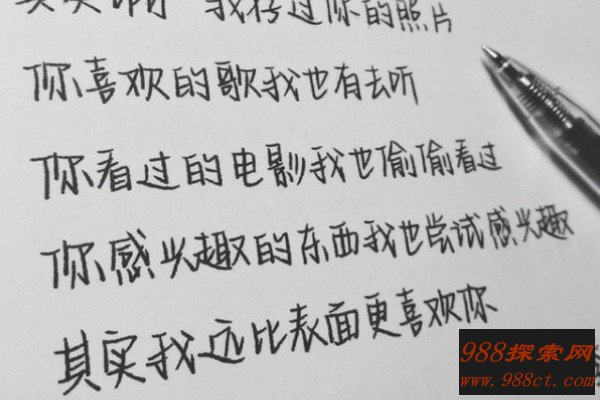 我存过你的照片
你喜欢的歌我也有去听
你看过的电影我也偷偷看过
你感兴趣的东西我也尝试感兴趣
其实我远比表面更喜欢你
988探索网
www.988ct.com